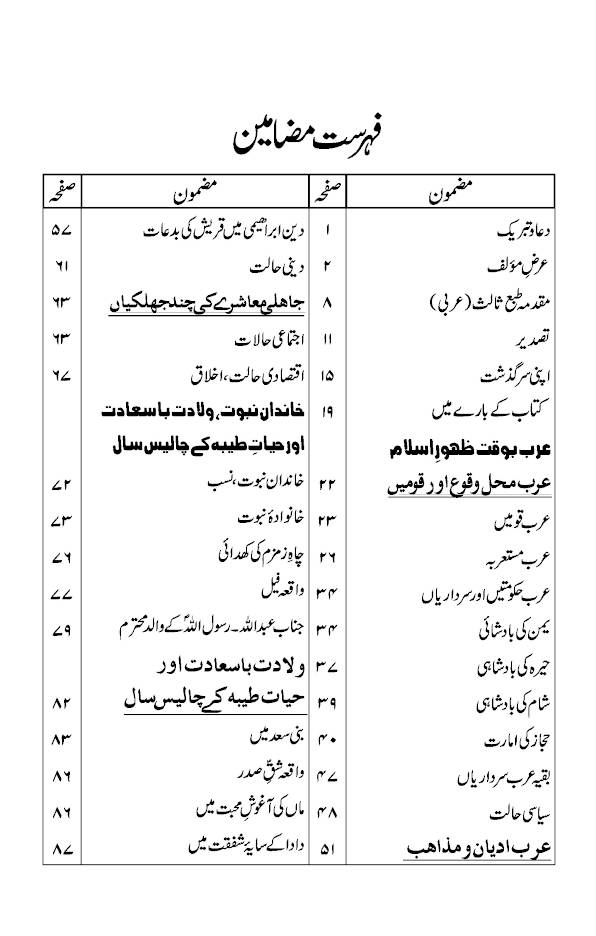 فہرست مضامین
مضمون صفحہ
دعا و تبریک ۱
عرضِ مؤلف ۲
مقدمہ طبع ثالث (عربی) ۸
تصدیر ۱۱
اپنی سرگذشت ۱۵
کتاب کے بارے میں ۱۹
عرب بوقت ظہورِ اسلام
عرب محل وقوع اور قومیں ۲۲
عرب قومیں ۲۳
عرب مستعربہ ۲۶
عرب حکومتیں اور سرداریاں ۳۴
یمن کی بادشائی ۳۴
حیرہ کی بادشاہی ۳۷
شام کی بادشاہی ۳۹
حجاز کی امارت ۴۰
بقیہ عرب سرداریاں ۴۷
سیاسی حالت ۴۸
عرب ادیان و مذاھب ۵۱
مضمون صفحہ
دین ابراھیمی میں قریش کی بدعات ۵۷
دینی حالت ۶۱
جاھلی معاشرے کی چند جھلکیاں ۶۳
اجتماعی حالات ۶۳
اقتصادی حالت، اخلاق ۶۷
خاندان نبوت، ولادت باسعادت
اور حیاتِ طیبہ کے چالیس سال
خاندان نبوت، نسب ۷۲
خانوادۂ نبوت ۷۳
چاہِ زمزم کی کھدائی ۷۶
واقعہ فیل ۷۷
جناب عبداللہ۔ رسول اللہؐ کے والد محترم ۷۹
ولادت باسعادت اور
حیات طیبہ کے چالیس سال ۸۲
بنی سعد میں ۸۳
واقعہ شقِّ صدر ۸۶
ماں کی آغوشِ محبت میں ۸۶
دادا کے سایۂ شفقت میں ۸۷